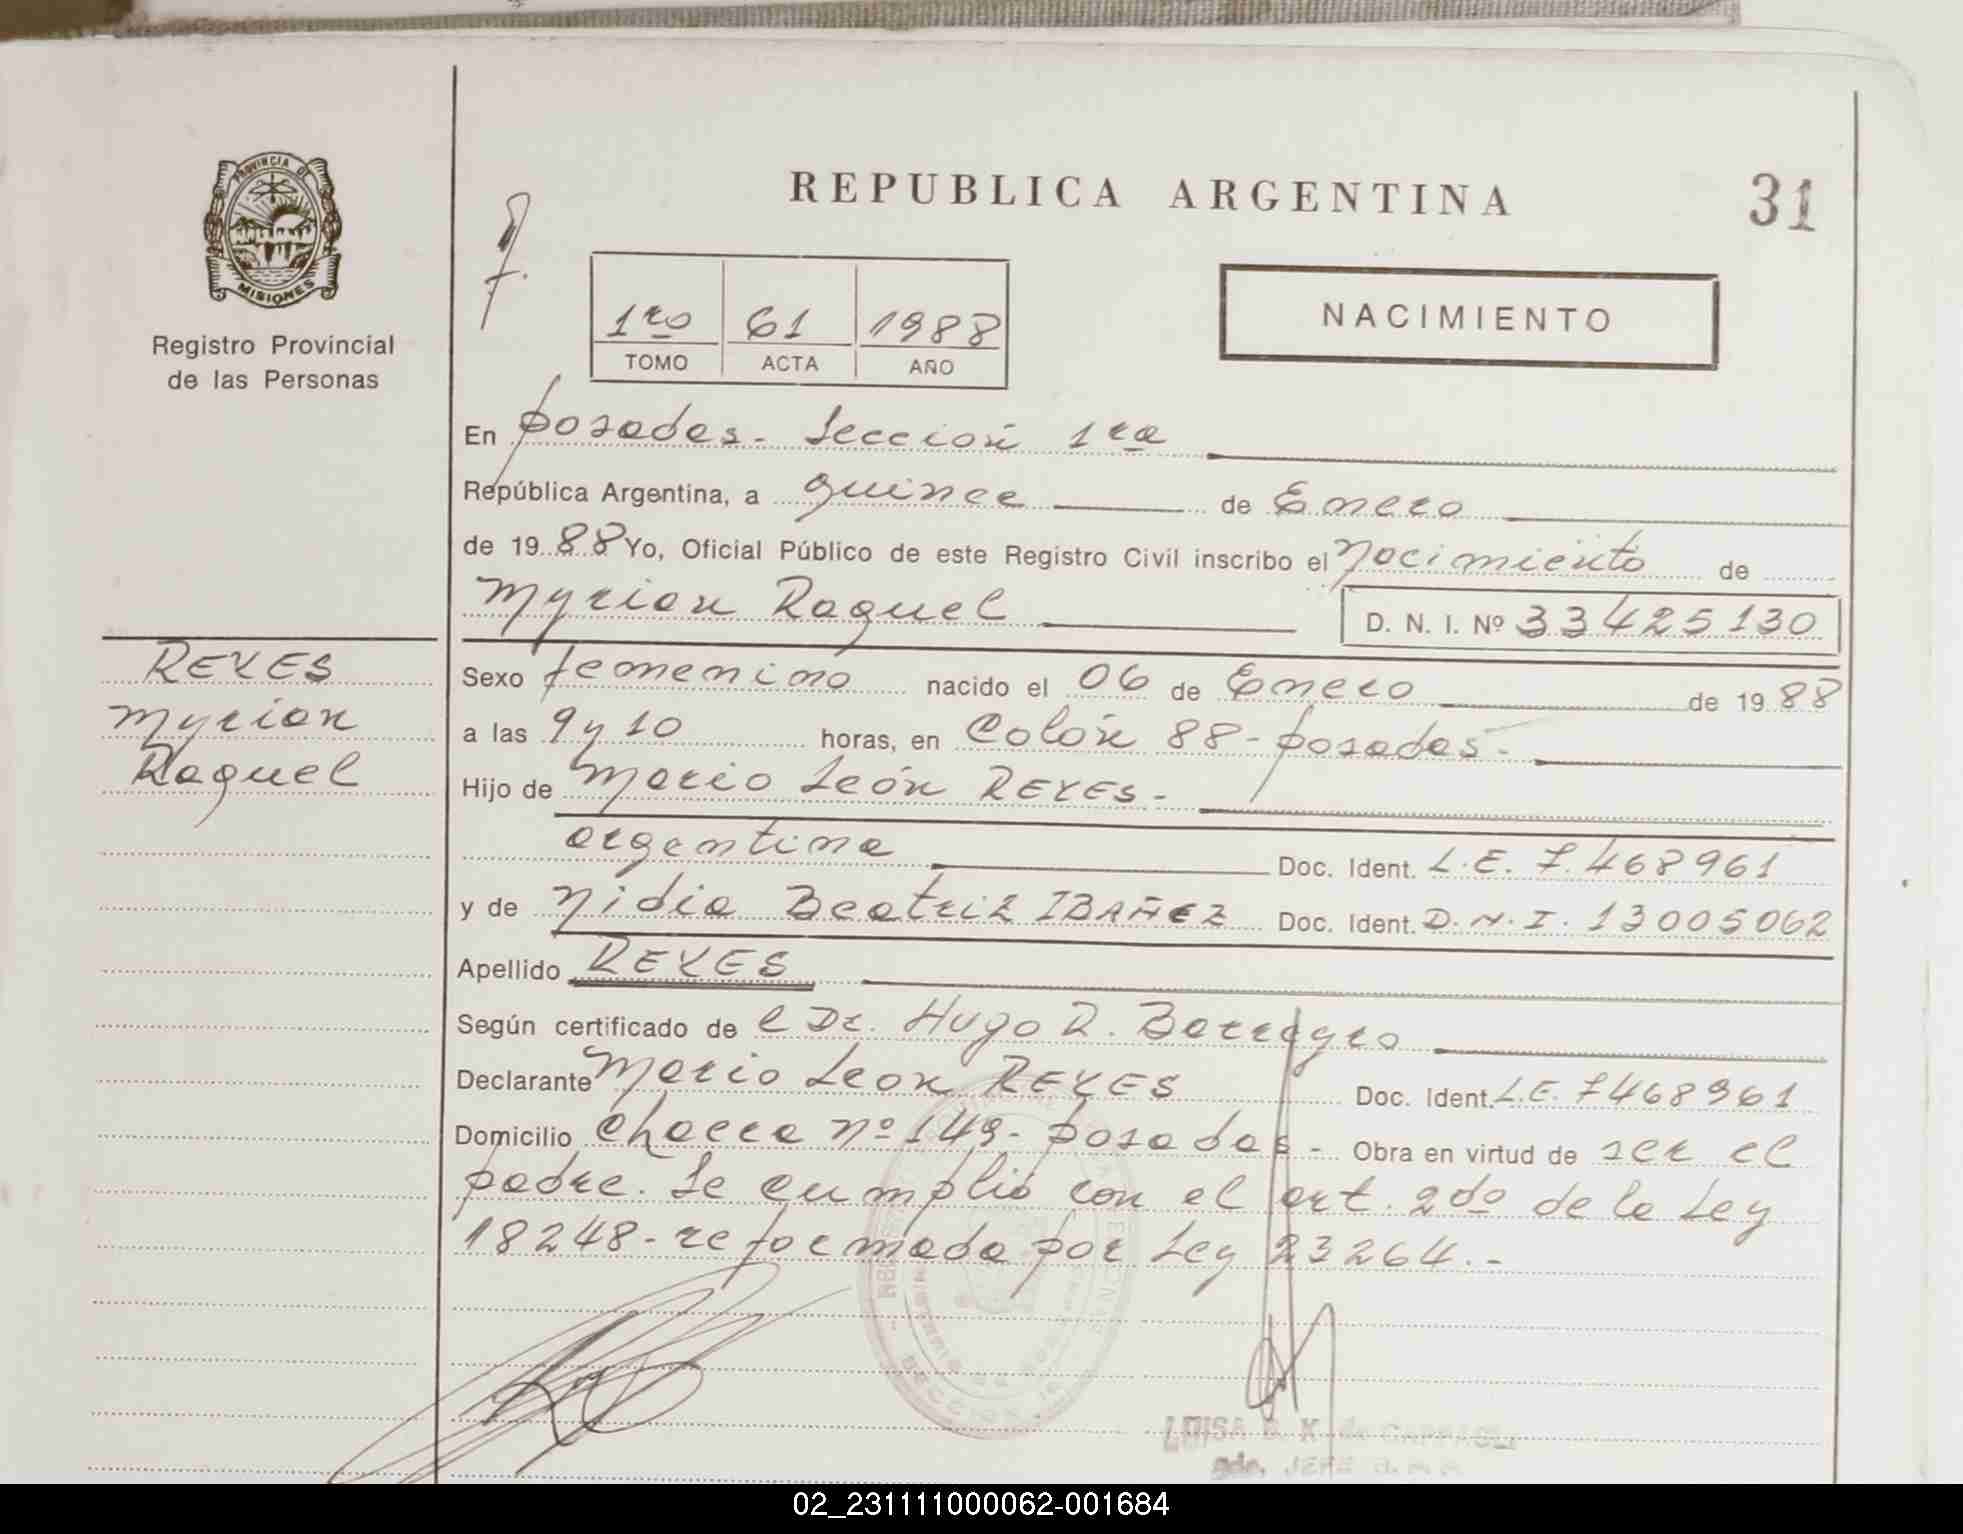 REPUBLICA ARGENTINA
31
PROVINCIA DE
MISIONES
Registro Provincial
de las Personas
1ro 61 1988
TOMO ACTA AÑO
NACIMIENTO
En posadas - Sección 1ra
República Argentina, a quince de Enero
de 1988 Yo, Oficial Público de este Registro Civil inscribo el Nacimiento de
Myrian Raquel D. N. I. Nº 33425130
REYES
Myrian
Raquel
Sexo femenino nacido el 06 de Enero de 1988
a las 9 y 10 horas, en Colón 88 - posadas -
Hijo de Mario León REYES -
argentina Doc. Ident. L.E. 7.468961
y de Nidia Beatriz IBAÑEZ Doc. Ident. D.N.I. 13005062
Apellido REYES
Según certificado de el Dr. Hugo R.
Declarante Mario Leon REYES Doc. Ident. L.E. 7468961
Domicilio Chacra nº 149 - posadas - Obra en virtud de ser el
padre. Se cumplió con el art. 2do de la Ley
18248 - reformada por Ley 23264. -
LUISA B. K. de
JEFE
02_231111000062-001684